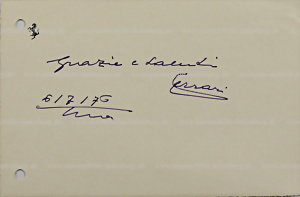 Grazie e saluti
Ferrari
6/7/76